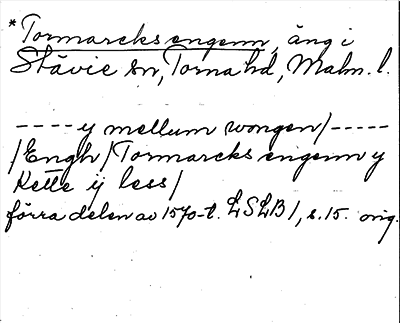 *Tormarcks engenn, äng i
Stävie sn, Torna hd, Malm. l.
----y mellum wongen/-----
/Engh/Tormarcks engenn y
Kette ij less/
förra delen av 1570-t. LSLB1, s.15. orig.